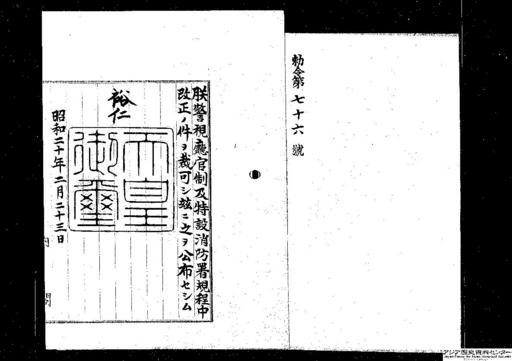 勅令第七十六號
朕警視廳官制及特設消防署規程中
改正ノ件ヲ裁可シ茲ニ之ヲ公布セシム
裕仁
天皇
御璽
昭和二十年二月二十三日
内閣
アジア歴史資料センター